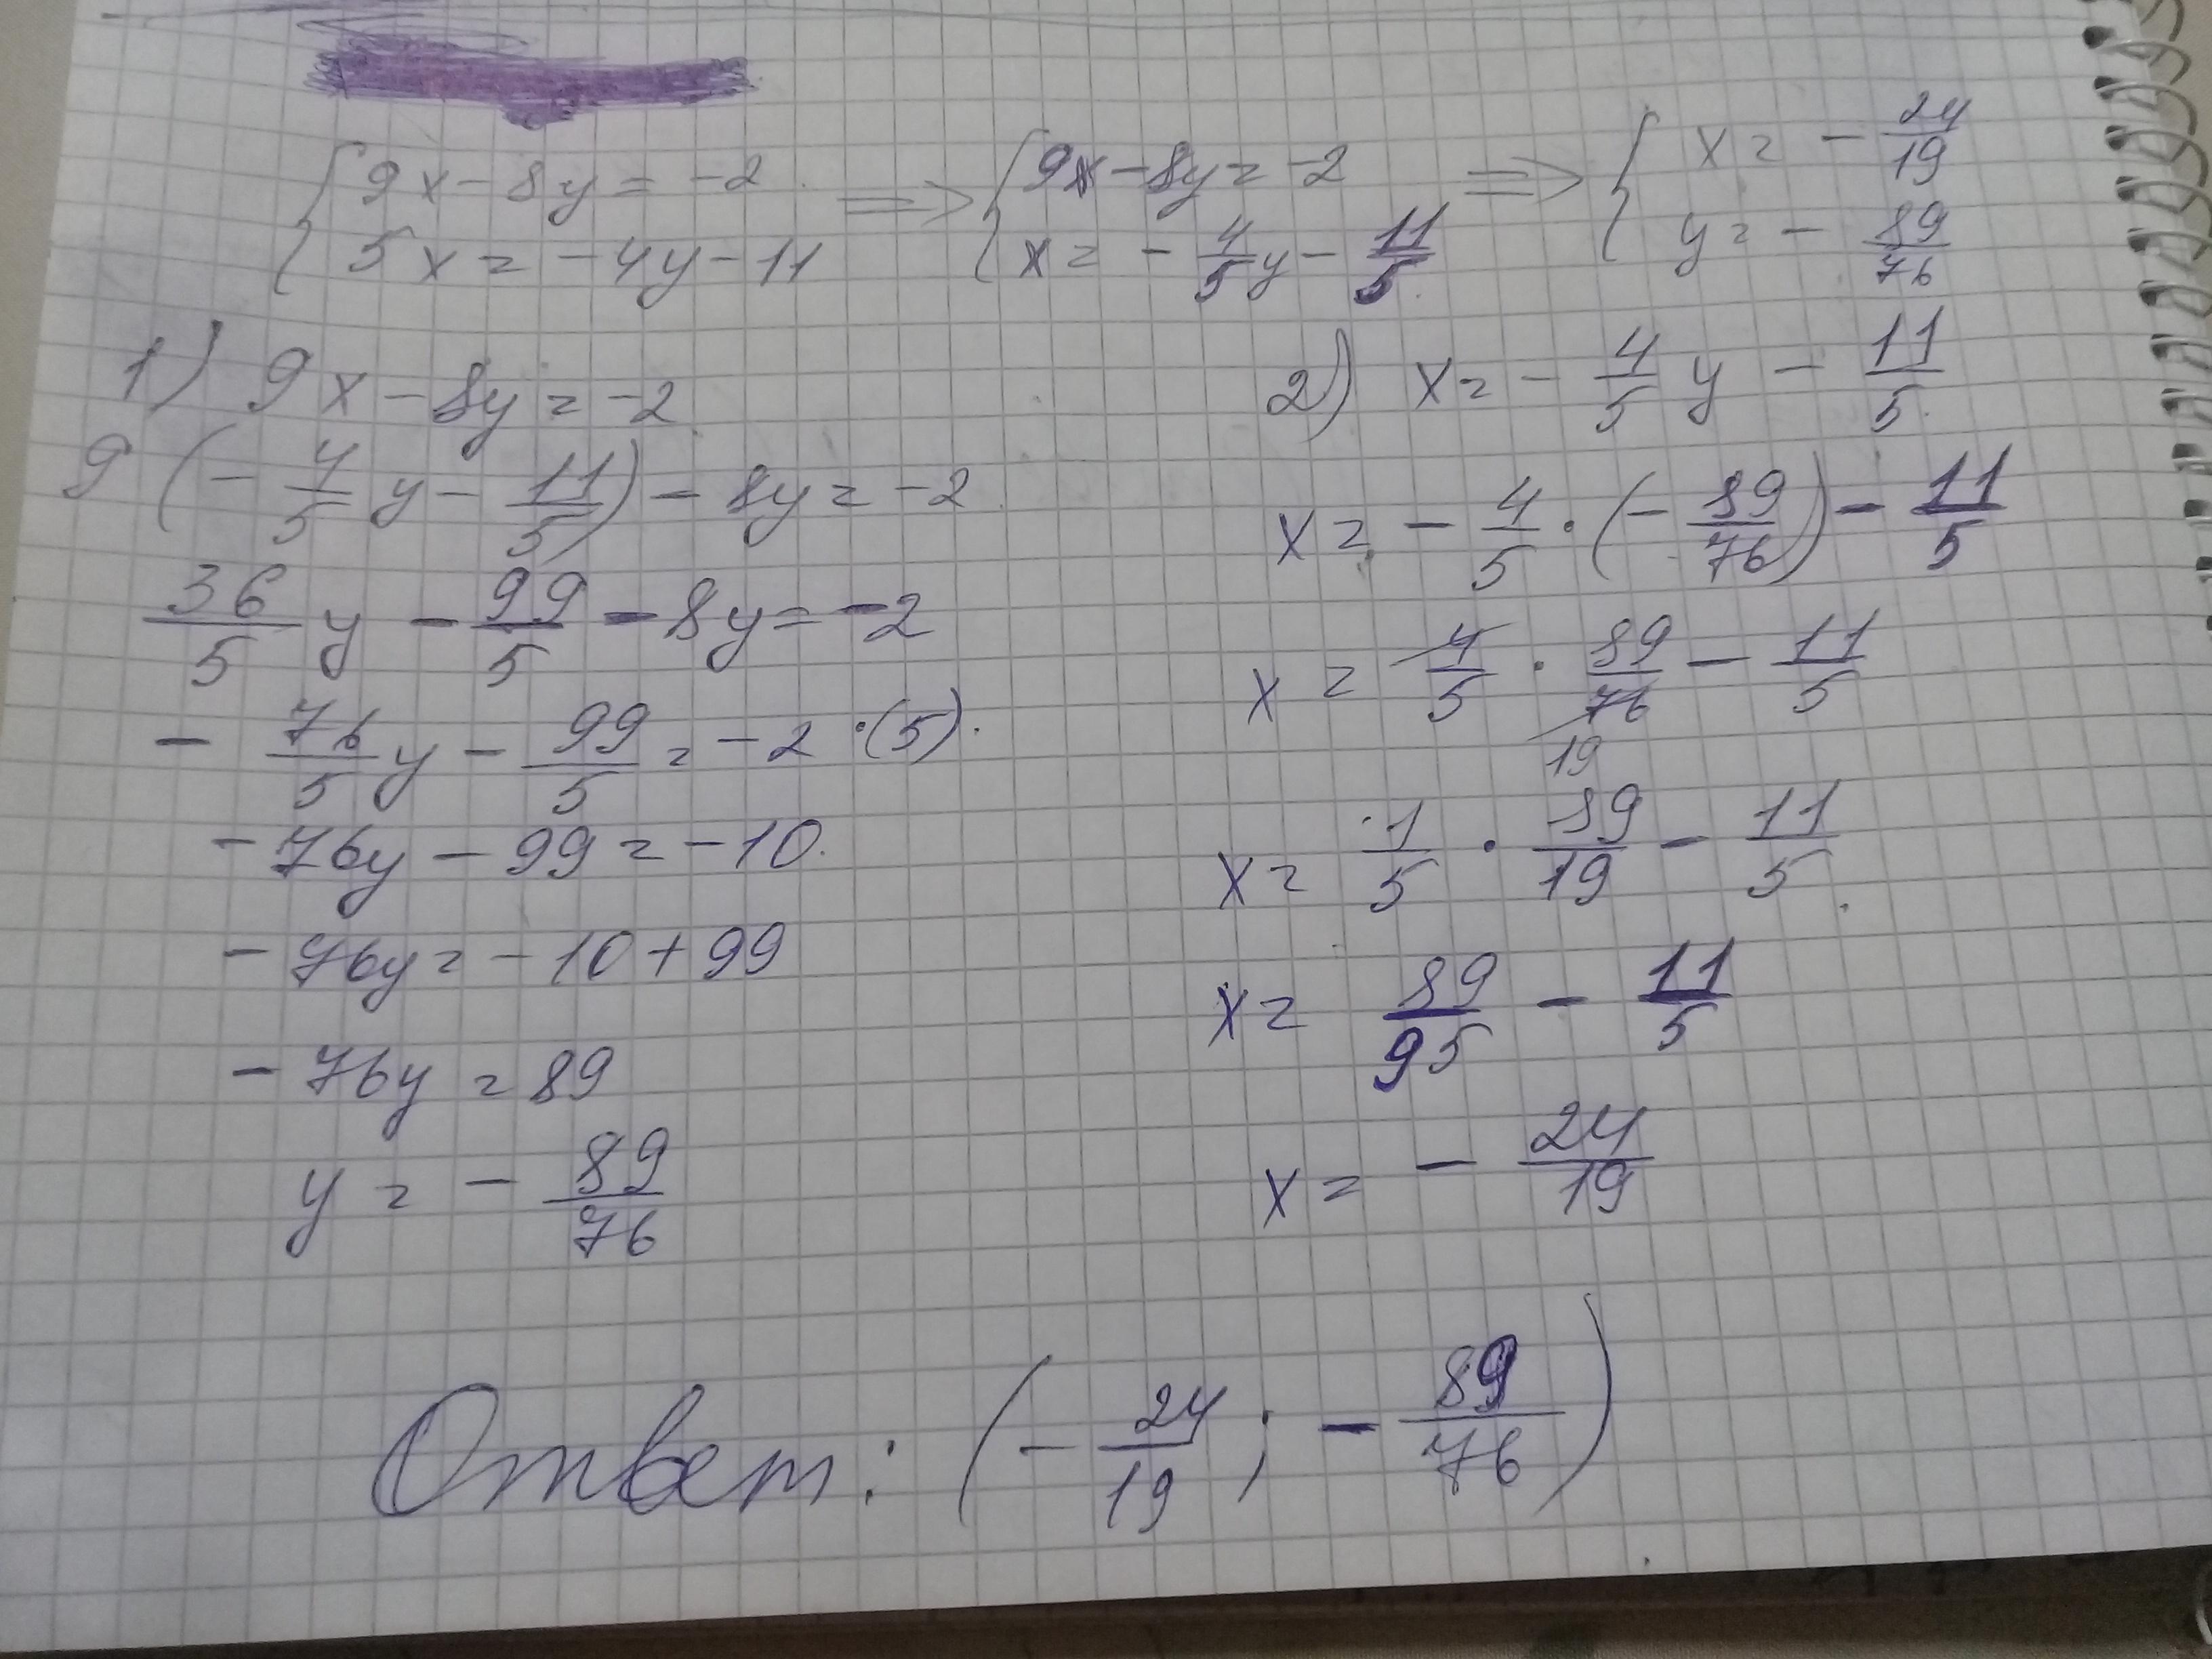 { 9x - 8y = -2 => { 9x - 8y = -2 => { x = - 24/19
5x = -4y - 11 x = - 4/5 y - 11/5 y = - 89/76
1) 9x - 8y = -2
9 (- 4/5 y - 11/5) - 8y = -2
36/5 y - 99/5 - 8y = -2
- 76/5 y - 99/5 = -2 ·(5).
-76y - 99 = -10.
-76y = -10 + 99
-76y = 89
y = - 89/76
2) x = - 4/5 y - 11/5
x = - 4/5 · (- 89/76) - 11/5
x = 4/5 · 89/76 - 11/5
19
x = 1/5 · 89/19 - 11/5
x = 89/95 - 11/5
x = - 24/19
Ответ: (- 24/19 ; - 89/76)